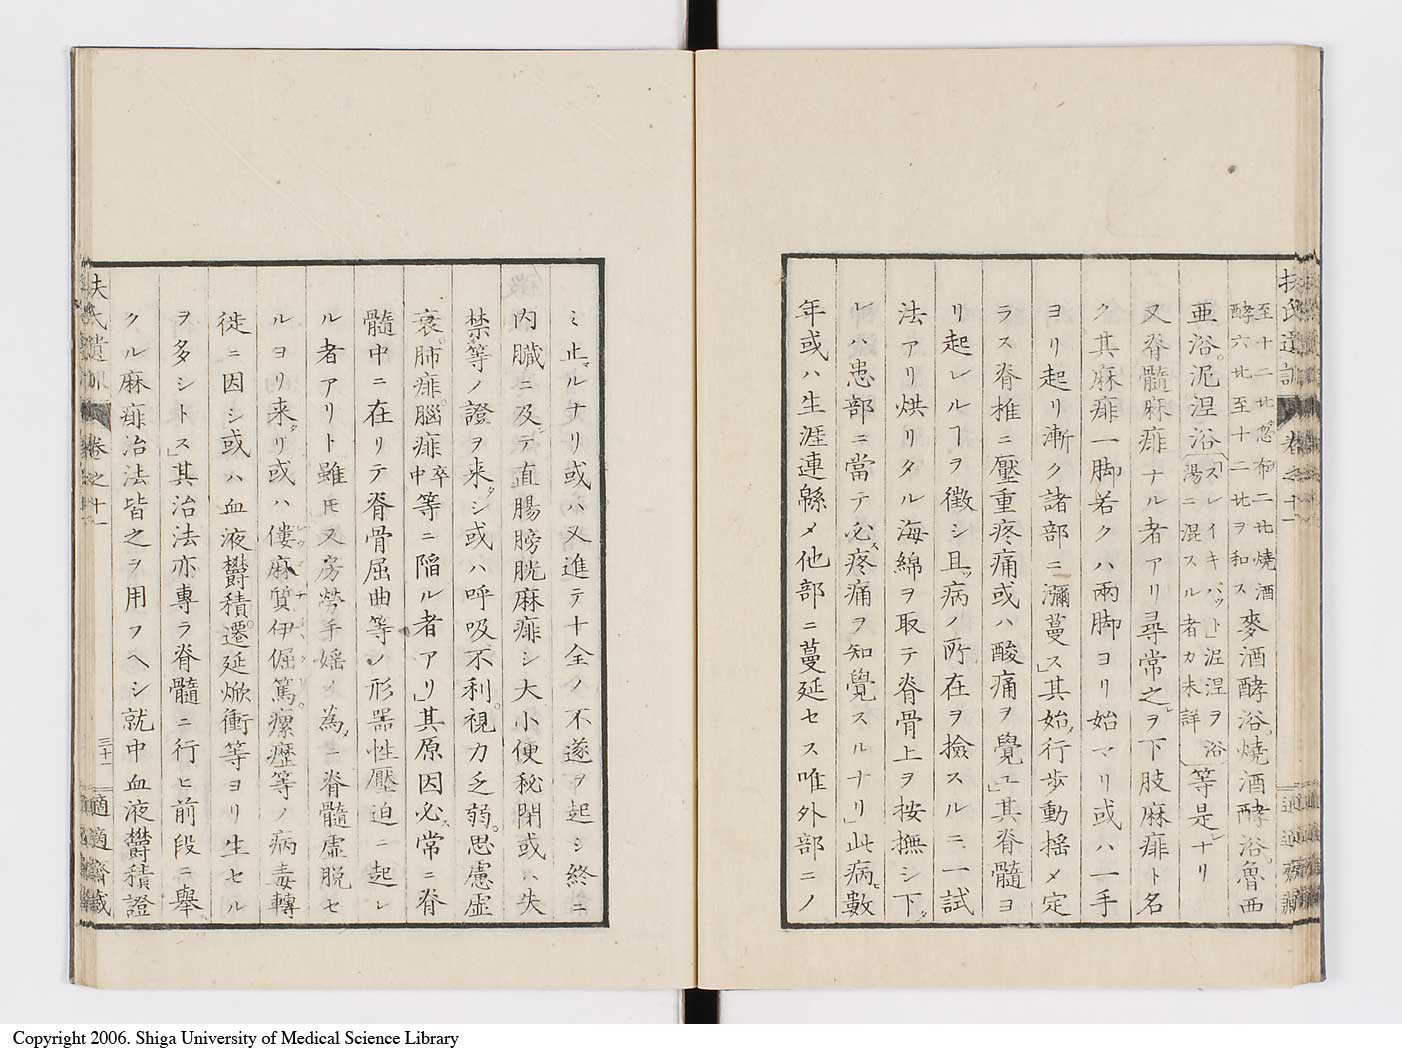 扶氏遺訓 巻之十一
至十二㧊忽布二㧊燒酒
酵六㧊至十二㧊ヲ和ス
麥酒酵浴。燒酒酵浴。魯西
亜浴。泥涅浴
「スレイキバット」涅涅ヲ浴
湯ニ混スル者カ未詳
等是ナリ
又脊髓麻痱ナル者アリ尋常之ヲ下肢麻痱ト名
ク其麻痱一脚若クハ兩脚ヨリ始マリ或ハ一手
ヨリ起リ漸ク諸部ニ瀰蔓ス」其始メ行歩動揺メ定
ラス脊椎ニ壓重疼痛或ハ酸痛ヲ覺ユ」其脊髓ヨ
リ起レルヿヲ徴シ且ツ病ノ所在ヲ撿スルニ一試
法アリ烘リタル海綿ヲ取テ脊骨上ヲ按撫シ下
レハ患部ニ當テ必ス疼痛ヲ知覺スルナリ」此病ヒ數
年或ハ生涯連綿メ他部ニ蔓延セス唯外部ニノ
ミ止マルナリ或ハ又進テ十全ノ不遂ヲ起シ終ニ
内臓ニ及テ直腸膀胱麻痱シ大小便秘閉或ハ失
禁等ノ證ヲ来タシ或ハ呼吸不利。視力乏弱。思慮虚
衰。肺痱。腦痱卒中等ニ陥ル者アリ」其原因必ス常ニ脊
髓中ニ在リテ脊骨屈曲等ノ形器性壓迫ニ起レ
ル者アリト雖𪜈又房勞手婬ノ為メニ脊髓虚脱セ
ルヨリ来タリ或ハ僂麻質伊倔篤。瘰癧等ノ病毒轉
徙ニ因シ或ハ血液欝積。遷延焮衝等ヨリ生セル
ヲ多シトス」其治法亦專ラ脊髓ニ行ヒ前段ニ擧
クル麻痱治法皆之ヲ用フヘシ就中血液欝積證
扶氏遺訓 巻之十一 三十二 適適齋藏
Copyright 2006. Shiga University of Medical Science Library